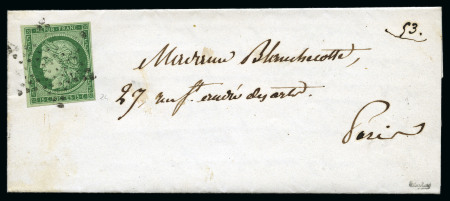 REPUB. FRANC.
53.
Madame Blanchecotte,
27, rue St. andré des arts.
Paris